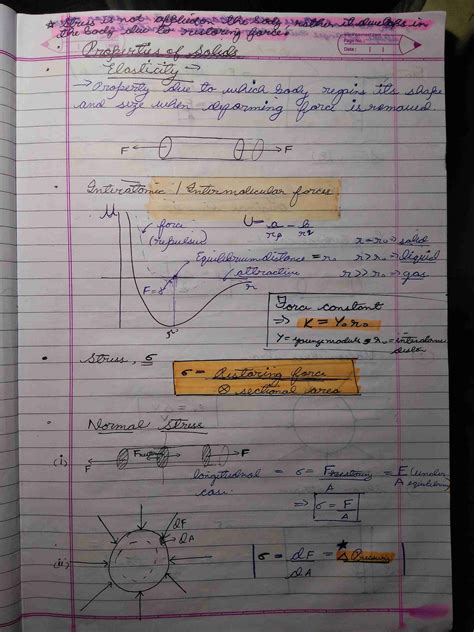 * Stress is not applied on the body rather it develops in
the body due to restoring force.
Page No.
Date:
Properties of Solids
Elasticity →
→ Property due to which body regains its shape
and size when deforming force is removed.
F ← → F
Interatomic / Intermolecular forces
U
force
(repulsive)
U = a/rp - b/rq
r = r₀ ⇒ solid
Equilibrium distance = r₀
r > r₀ ⇒ liquid
attractive
r >> r₀ ⇒ gas
F=0
r
r₀
Force constant
⇒ K = Y₀r₀
Y = young modulus r₀ = interatomic
Stress, σ
σ = Restoring force
⊗ sectional area
Normal Stress
(i)
F
F
longitudinal
case.
= σ = Frestoring/A = F/A (under
equilibrium)
⇒ σ = F/A
(ii)
dF
dA
σ = dF/dA = Δ Pressure